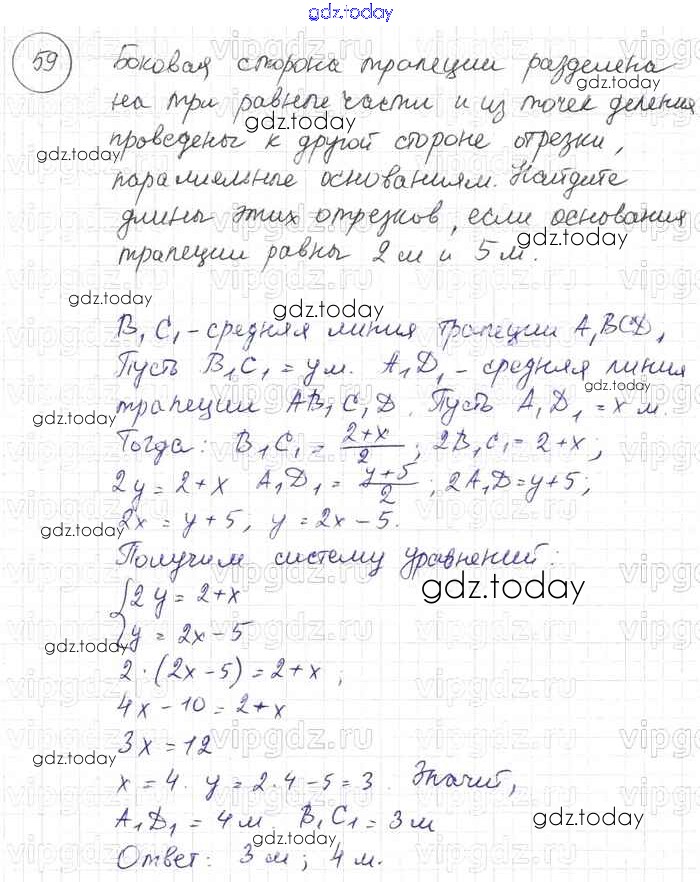 gdz.today
59 Боковая сторона трапеции разделена
gdz.today
на три равные части и из точек деления
gdz.today
проведены к другой стороне отрезки,
gdz.today
параллельные основаниям. Найдите
длины этих отрезков, если основания
gdz.today
трапеции равны 2 м и 5 м.
gdz.today
gdz.today
B₁C₁ - средняя линия трапеции A₁BCD₁
Пусть B₁C₁ = y м. A₁D₁ - средняя линия
gdz.today
трапеции AB₁C₁D. Пусть A₁D₁ = x м.
gdz.today
Тогда: B₁C₁ = (2+x)/2; 2B₁C₁ = 2+x;
2y = 2+x A₁D₁ = (y+5)/2; 2A₁D = y+5;
gdz.today
2x = y+5, y = 2x-5.
Получим систему уравнений:
{2y = 2+x
gdz.today
{y = 2x-5
gdz.today
2·(2x-5) = 2+x;
4x-10 = 2+x
3x = 12
gdz.today
gdz.today
x = 4. y = 2·4-5 = 3. Значит,
A₁D₁ = 4 м. B₁C₁ = 3 м
gdz.today
gdz.today
Ответ: 3 м; 4 м.
vipgdz.ru